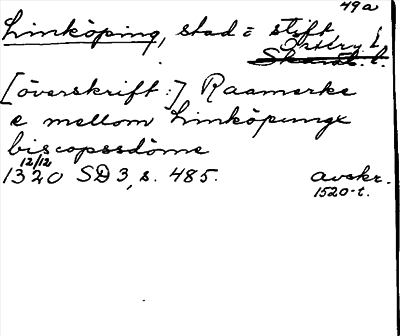 49a
Linköping, stad o stift
Östergötl.
[överskrift:] Raamerke
e mellom Linköpungx
biscopssdöme
12/12
1320 SD 3, s. 485. avskr.
1520-t.